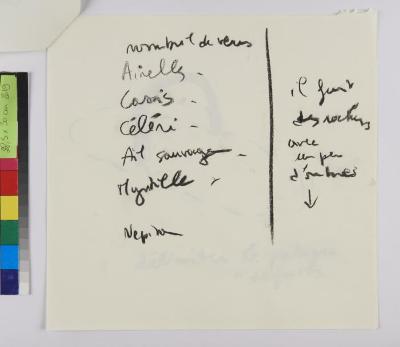 nombre de verres
Airelles -
Cassis -
Céleri -
Ail sauvage -
Myrtille -
Nepita
il faut
des rochers
avec
un peu
d'ombres
↓